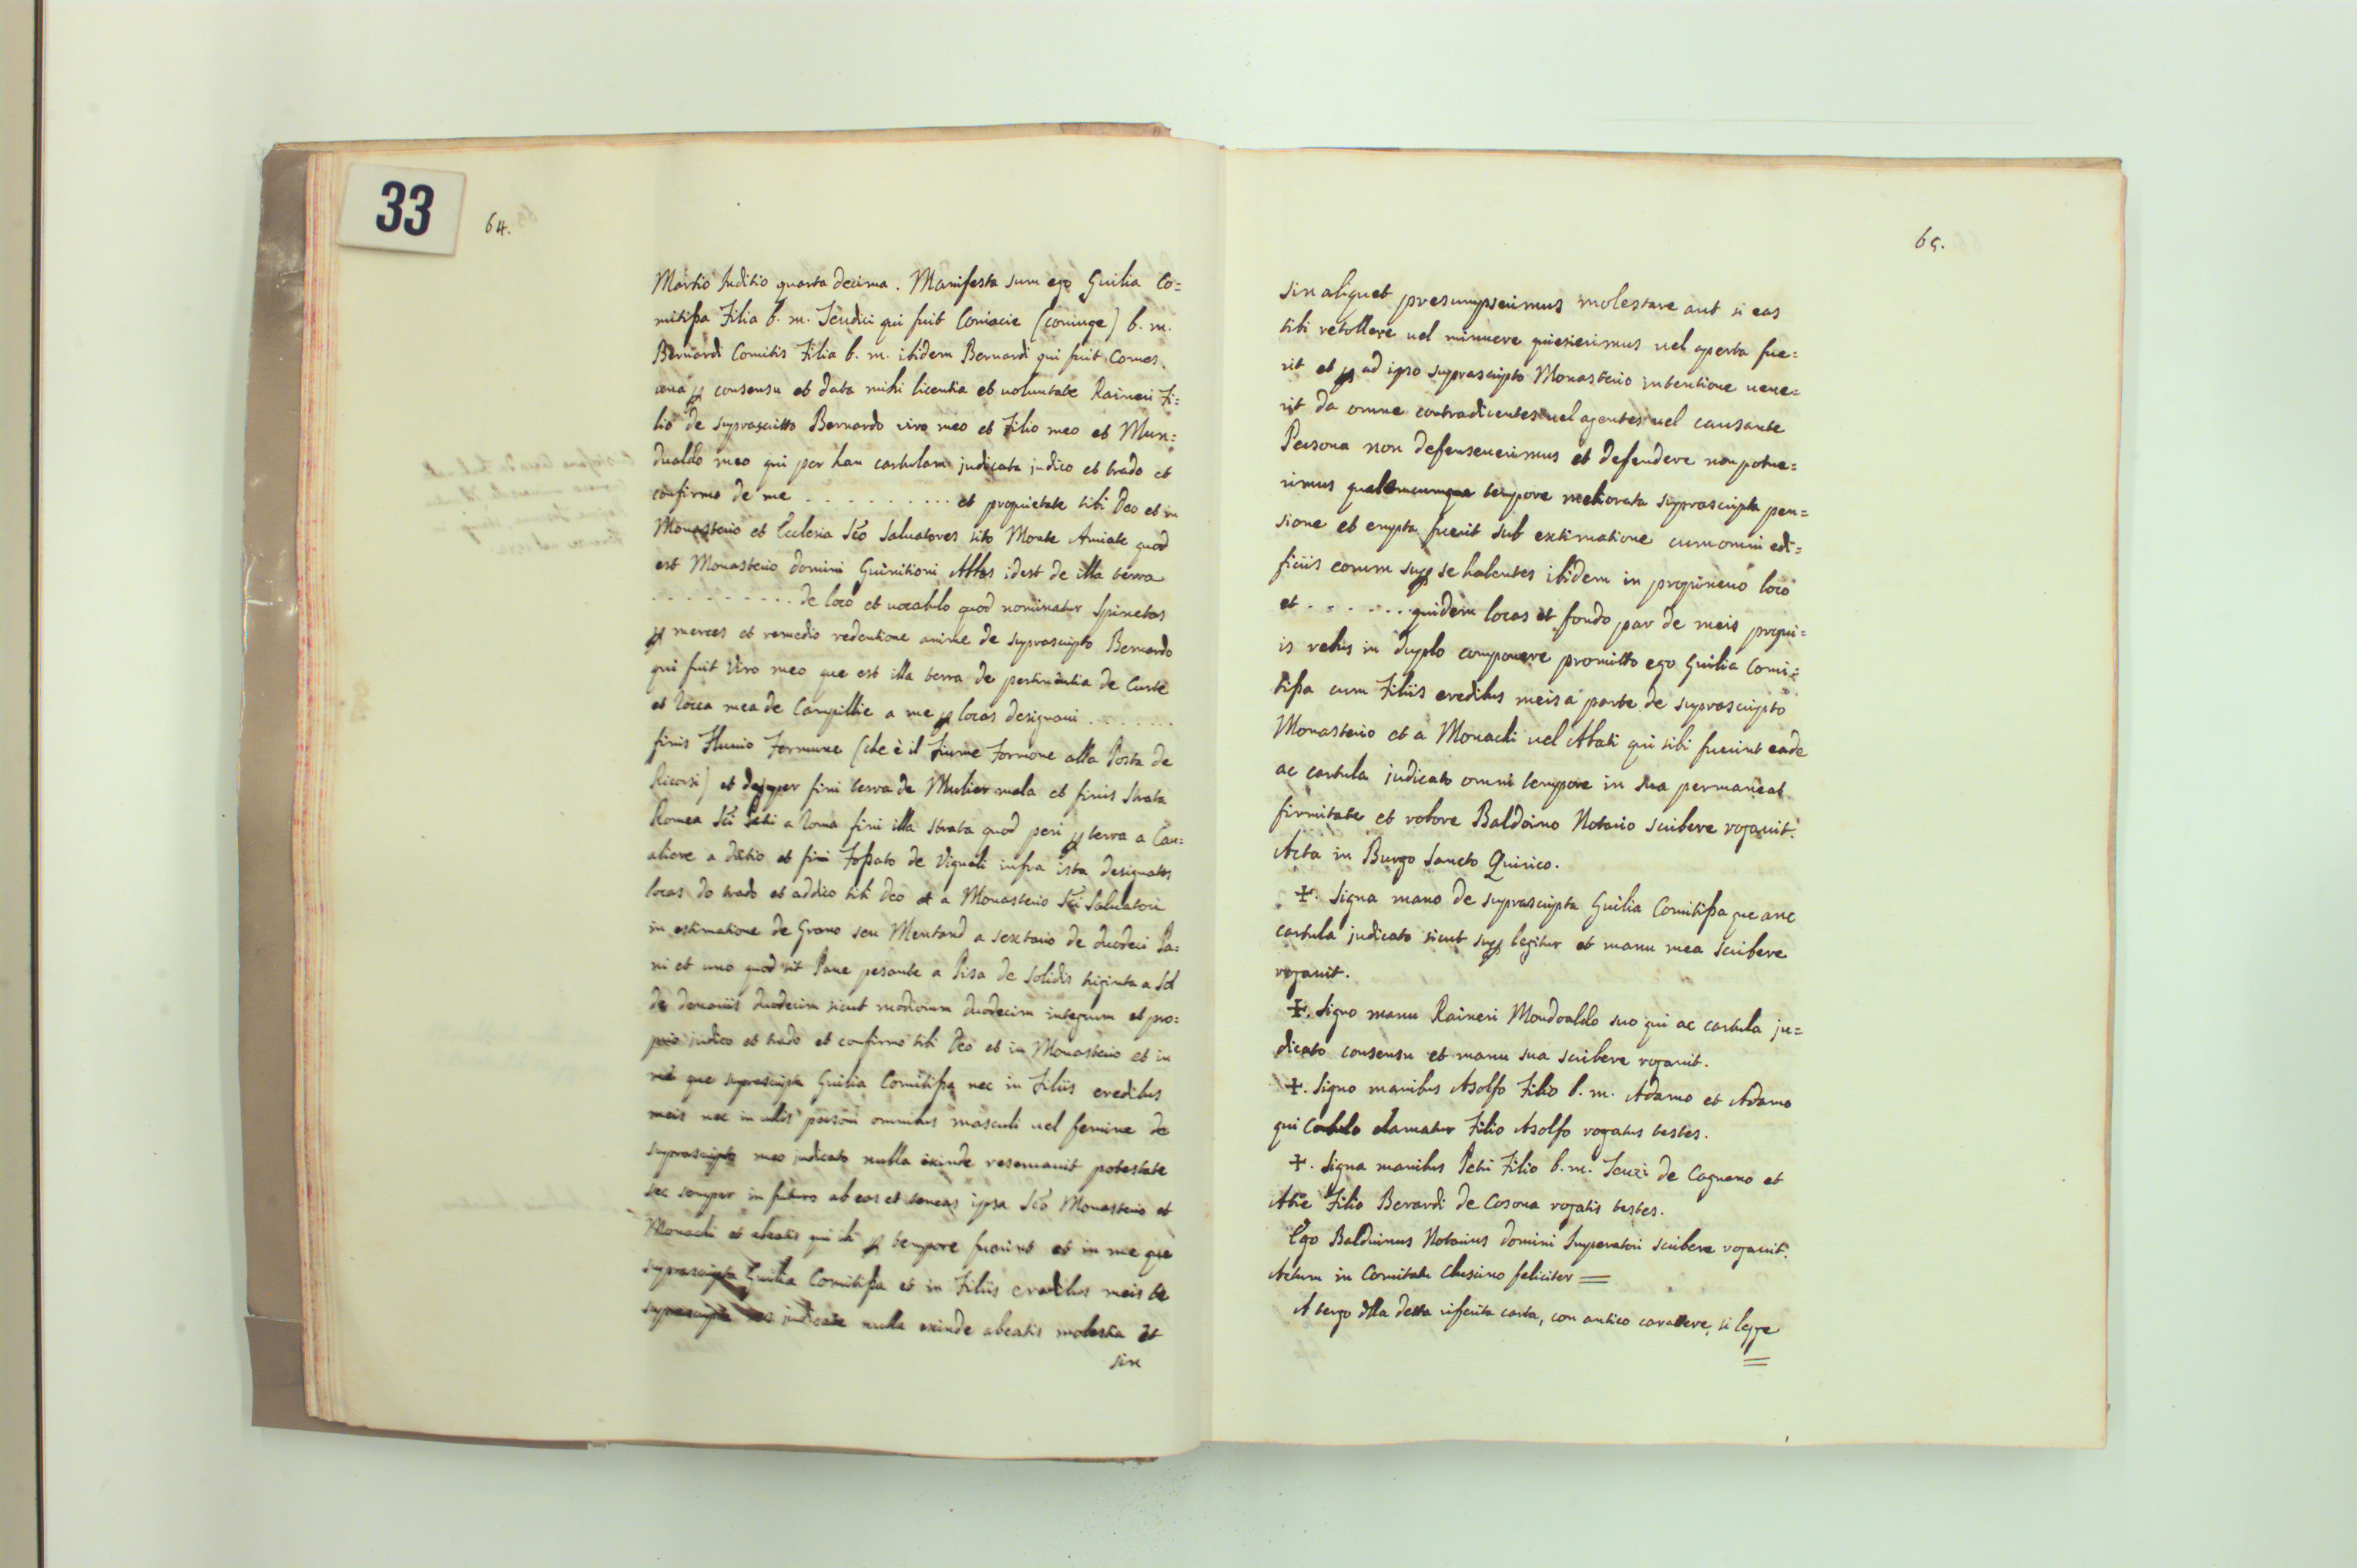 33
64.
Martio Inditio quarta decima. Manifesta sum ego Guilia Co=
mitissa Filia b. m. Teudici qui fuit Coniacie (coniuge) b. m.
Bernardi Comitis Filia b. m. itidem Bernardi qui fuit Comes.
una p consensu et data mihi licentia et uoluntate Raineri Fi=
lio de suprascritto Bernardo viro meo et Filio meo et Mun=
dualdo meo qui per han cartulam judicata judico et trado et
confirmo de me . . . . . . . . . . et proprietate tibi Deo et in
Monasterio et Ecclesia Sco Saluatores sito Monte Amiate quod
est Monasterio domini Guinitioni Abbas idest de illa terra
. . . . . . . . . . de loco et uocabulo quod nominatur Spinetas
p merces et remedio redentione anime de suprascripto Bernardo
qui fuit Viro meo que est illa terra de pertinentia de Curte
et Rocca mea de Campillie a me p locas designaui . . . . . . .
finis Fluuio Formune (che è il Fiume Formone alla Posta de
Ricorsi) et desuper fini terra de Mulier mala et finis Strata
Romea Sci Petri a Roma fini illa strata quod peri p terra a Cau=
aliore a dictio et fini Fossato de Vignali infra ista designatas
locas do trado et addico tibi Deo et a Monasterio Sci Saluatori
in estimatione de Grano seu Mentand a sextario de duodeci Pa=
ni et uno quod sit Pane pesante a Pisa de solidis triginta a Sol
de denariis duodecim sicut modiorum duodecim integrum et pro=
prio judico et trado et confirmo tibi Deo et in Monasterio et in
me que suprascripta Guilia Comitissa nec in Filiis eredibus
meis nec in ullis personi omnibus masculi uel femine de
suprascripto meo judicato nulla exinde reseruauit potestate
sec semper in futuro abeas et teneas ipsa Sco Monasterio et
Monachi et abatis qui ibi p tempore fuerint et in me que
suprascripta Guilia Comitissa et in Filiis eredibus meis de
suprascripta judicato nulla exinde abeatis molestia et
sin
65.
sin aliquet presumpserimus molestare aut si eas
tibi retollere uel minuere quesierimus uel aperta fue=
rit et p ad ipso suprascripto Monasterio intentione uene=
rit da omne contradicentes uel agentes uel causante
Persona non defensauerimus et defendere non potue=
rimus qualemcumque tempore meliorata suprascripta pen=
sione et empta fuerit sub extimatione cum omni edi=
ficiis eorum sup se habentes ibidem in propinquo loco
et . . . . . . . quidem locas et fondo par de meis propri=
is rebus in duplo componere promitto ego Guilia Comi=
tissa cum Filiis eredibus meis a parte de suprascripto
Monasterio et a Monachi uel Abati qui sibi fuerint eade
ac cartula judicato omni tempore in sua permaneat
firmitate et robore Baldoino Notario scribere rogauit.
Acta in Burgo Sancto Quirico.
+. Signa mano de suprascripta Guilia Comitissa que anc
cartula judicato sicut sup legitur et manu mea scribere
rogauit.
+. Signo manu Raineri Mondoaldo suo qui ac cartula ju=
dicato consensu et manu sua scribere rogauit.
+. Signo manibus Asolfo Filio b. m. Adamo et Adamo
qui clamatur Filio Asolfo rogatus testes.
+. Signa manibus Petri Filio b. m. Teuzi de Cagnano et
Atie Filio Berardi de Cosona rogatis testes.
Ego Balduinus Notarius domini Imperatori scribere rogauit.
Actum in Comitatu Clusino feliciter =
A tergo dlla detta riferita carta, con antico carattere, si legge
=